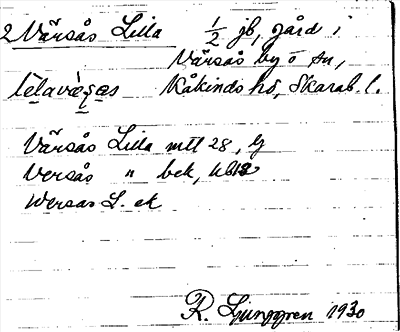 2 Värsås Lilla ½ jb, gård i
Värsås by o sn,
lelavæṣas Kåkinds hd, Skarab. l.
Värsås Lilla mtl 28, G
Versås " bek,
Wersas L. ek
R. Ljunggren 1930